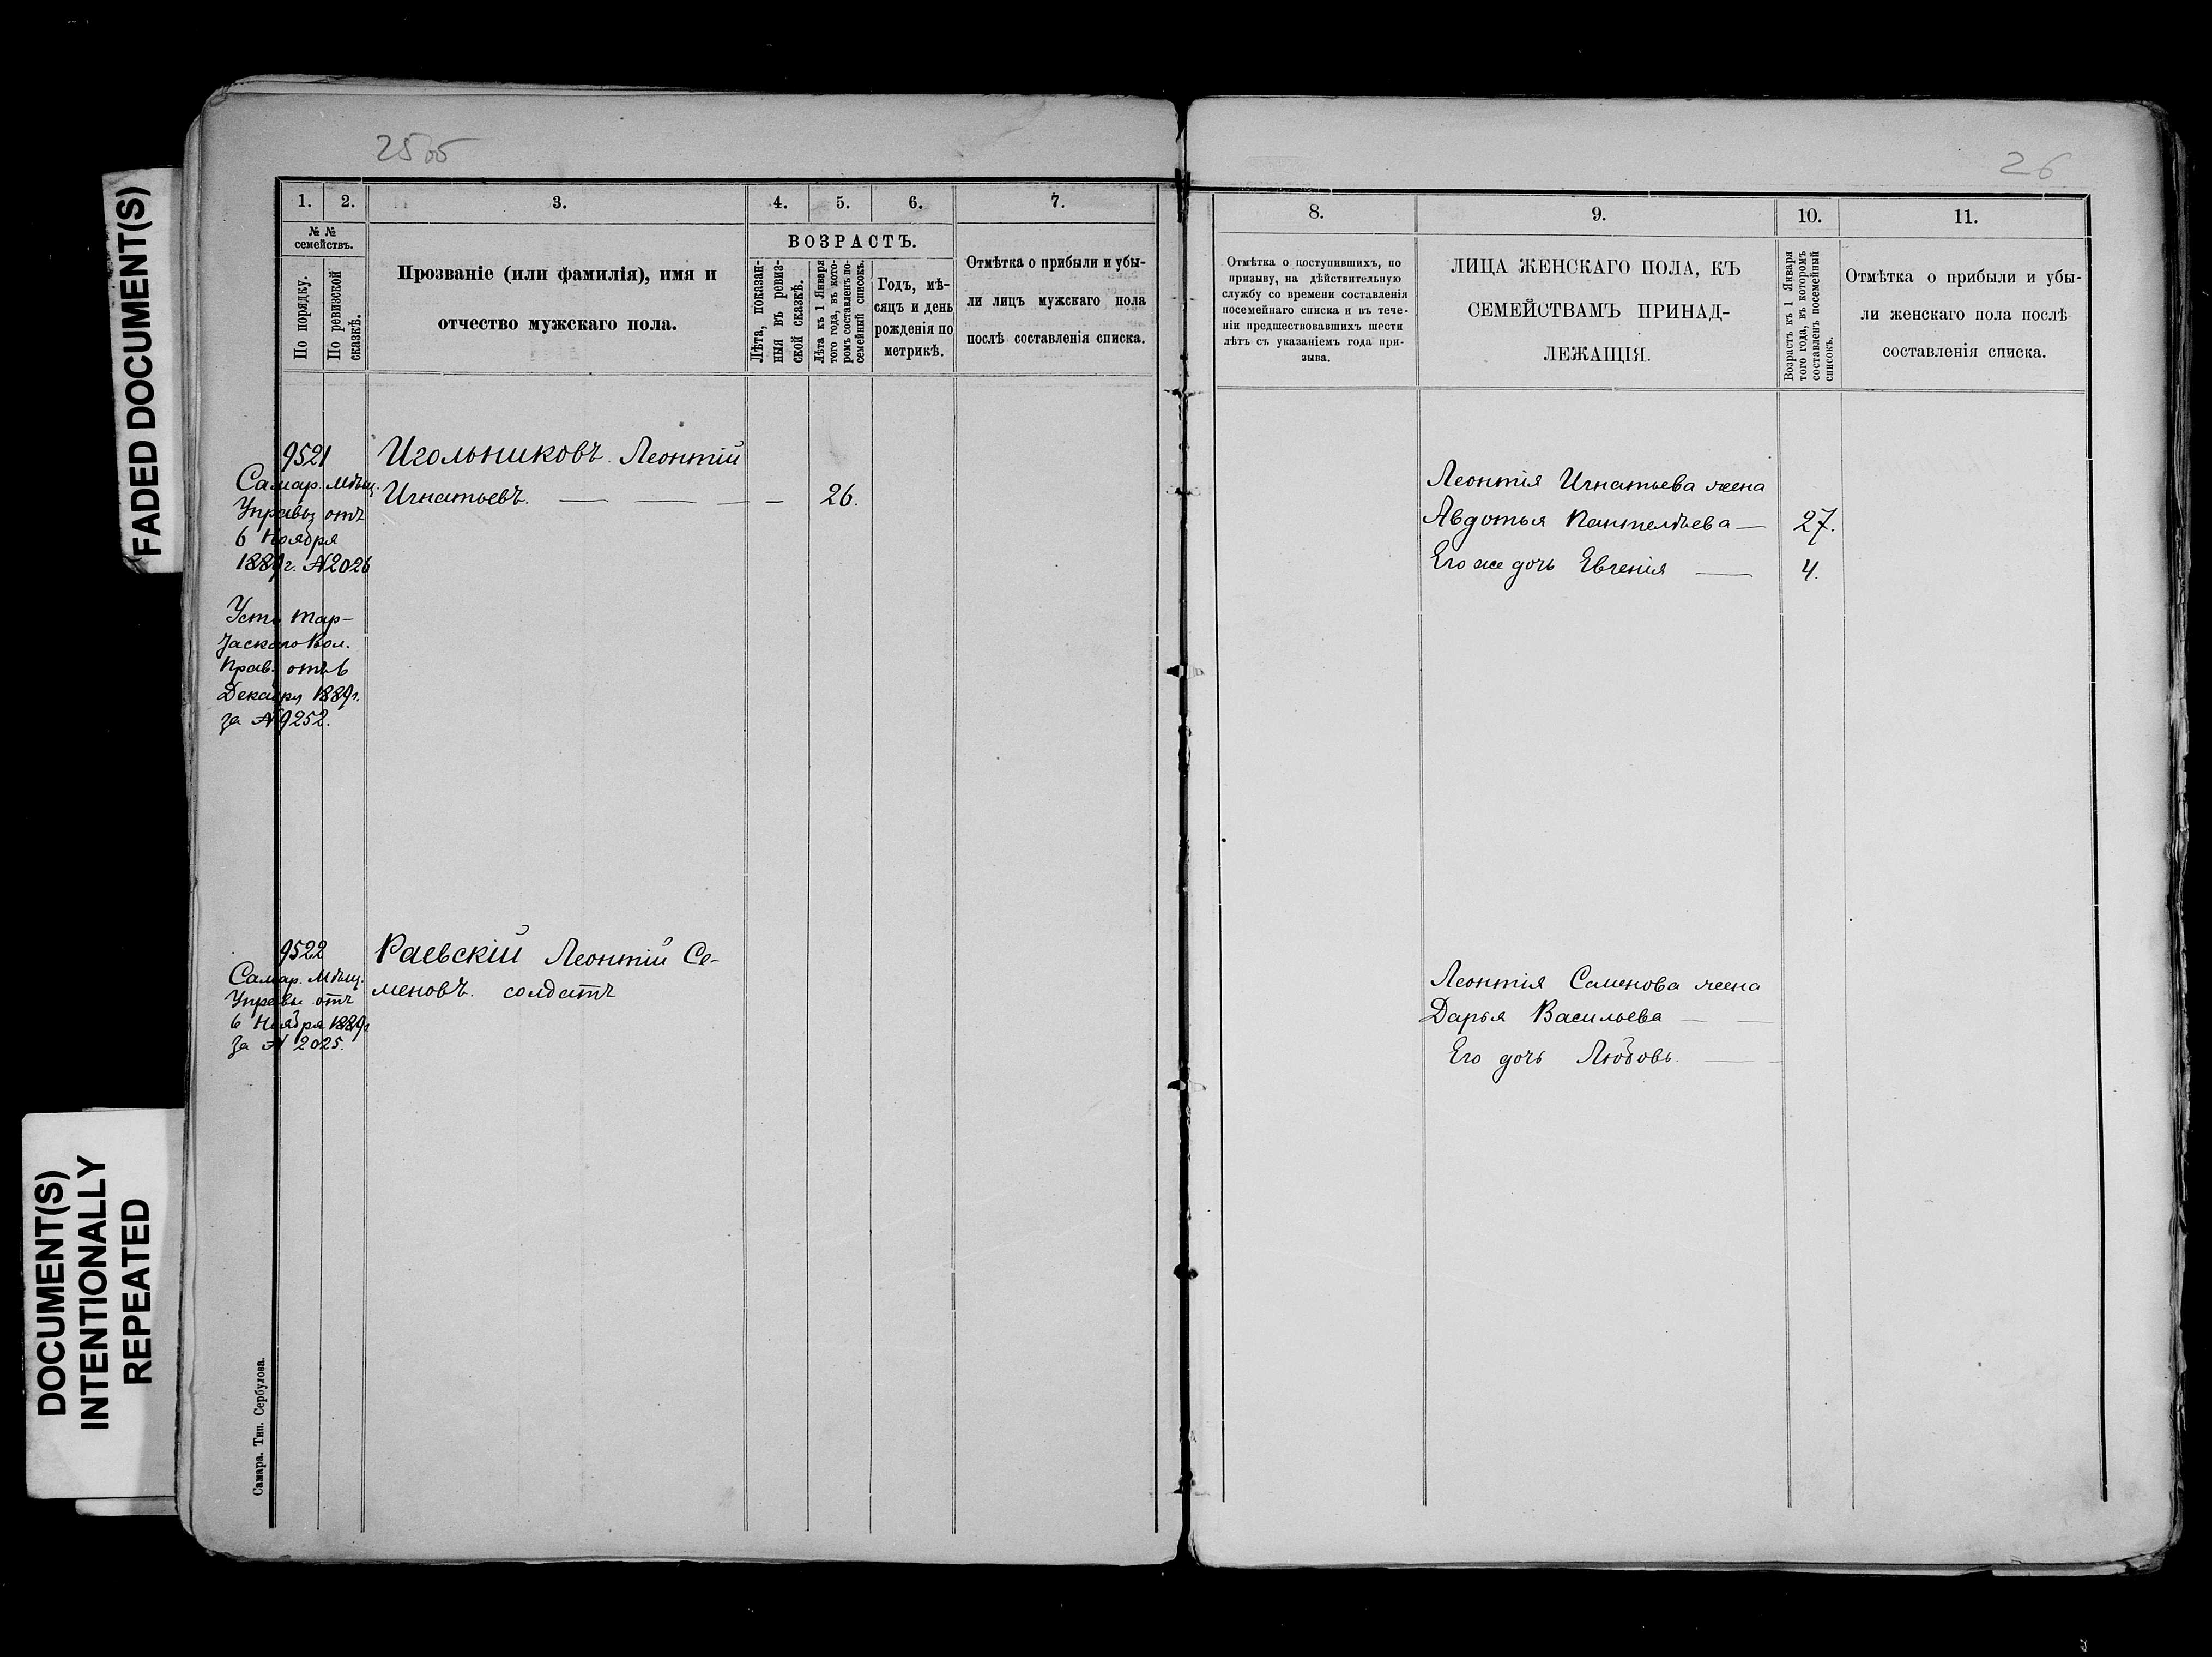 FADED DOCUMENT(S)
DOCUMENT(S)
INTENTIONALLY
REPEATED
25об
1.
2.
3.
4.
5.
6.
7.
№ №
семействъ.
По порядку.
По ревизской
сказкѣ.
Прозваніе (или фамилія), имя и
отчество мужскаго пола.
ВОЗРАСТЪ.
Лѣта, показан-
ныя въ ревиз-
ской сказкѣ.
Лѣта къ 1 Января
того года, въ кото-
ромъ составленъ по-
семейный списокъ.
Годъ, мѣ-
сяцъ и день
рожденія по
метрикѣ.
Отмѣтка о прибыли и убы-
ли лицъ мужскаго пола
послѣ составленія списка.
9521
Самар. Мѣщ.
Управы отъ
6 Ноября
1889г. №2026
Усть Тар-
Вол.
Прав. отъ 6
Декабря 1889г.
за №9252.
Игольниковъ. Леонтій
Игнатьевъ. — — — — 26.
9522
Самар. Мѣщ.
Управы отъ
6 Ноября 1889г
за № 2025.
Раевскій Леонтій Се-
меновъ. солдатъ
Самара. Тип. Сербулова.
26
8.
9.
10.
11.
Отмѣтка о поступившихъ, по
призыву, на дѣйствительную
службу со времени составленія
посемейнаго списка и въ тече-
ніи предшествовавшихъ шести
лѣтъ съ указаніемъ года при-
зыва.
ЛИЦА ЖЕНСКАГО ПОЛА, КЪ
СЕМЕЙСТВАМЪ ПРИНАД-
ЛЕЖАЩІЯ.
Возрастъ къ 1 Января
того года, въ которомъ
составленъ посемейный
списокъ.
Отмѣтка о прибыли и убы-
ли женскаго пола послѣ
составленія списка.
Леонтія Игнатьева жена
Авдотья Пантелѣева — 27.
Его же дочь Евгенія — 4.
Леонтія Семенова жена
Дарья Васильева — —
Его дочь Любовь. —